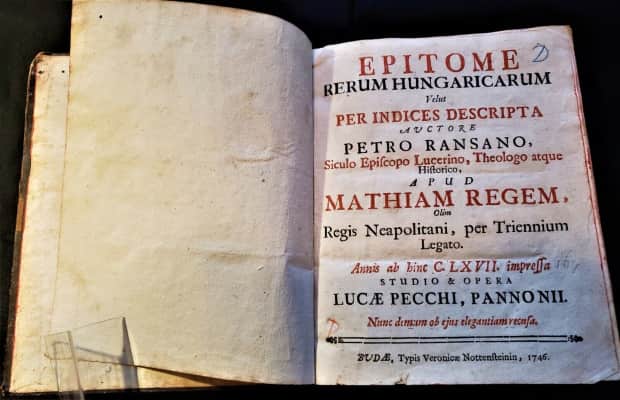 EPITOME
RERUM HUNGARICARUM
Velut
PER INDICES DESCRIPTA
AUCTORE
PETRO RANSANO,
Siculo Episcopo Lucerino, Theologo atque
Historico,
APUD
MATHIAM REGEM,
Olim
Regis Neapolitani, per Triennium
Legato.
Annis ab hinc C. LXVII. impressa
STUDIO & OPERA
LUCÆ PECCHI, PANNONII.
Nunc demum ob ejus elegantiam recusa.
BUDÆ, Typis Veronicæ Nottensteinin, 1746.